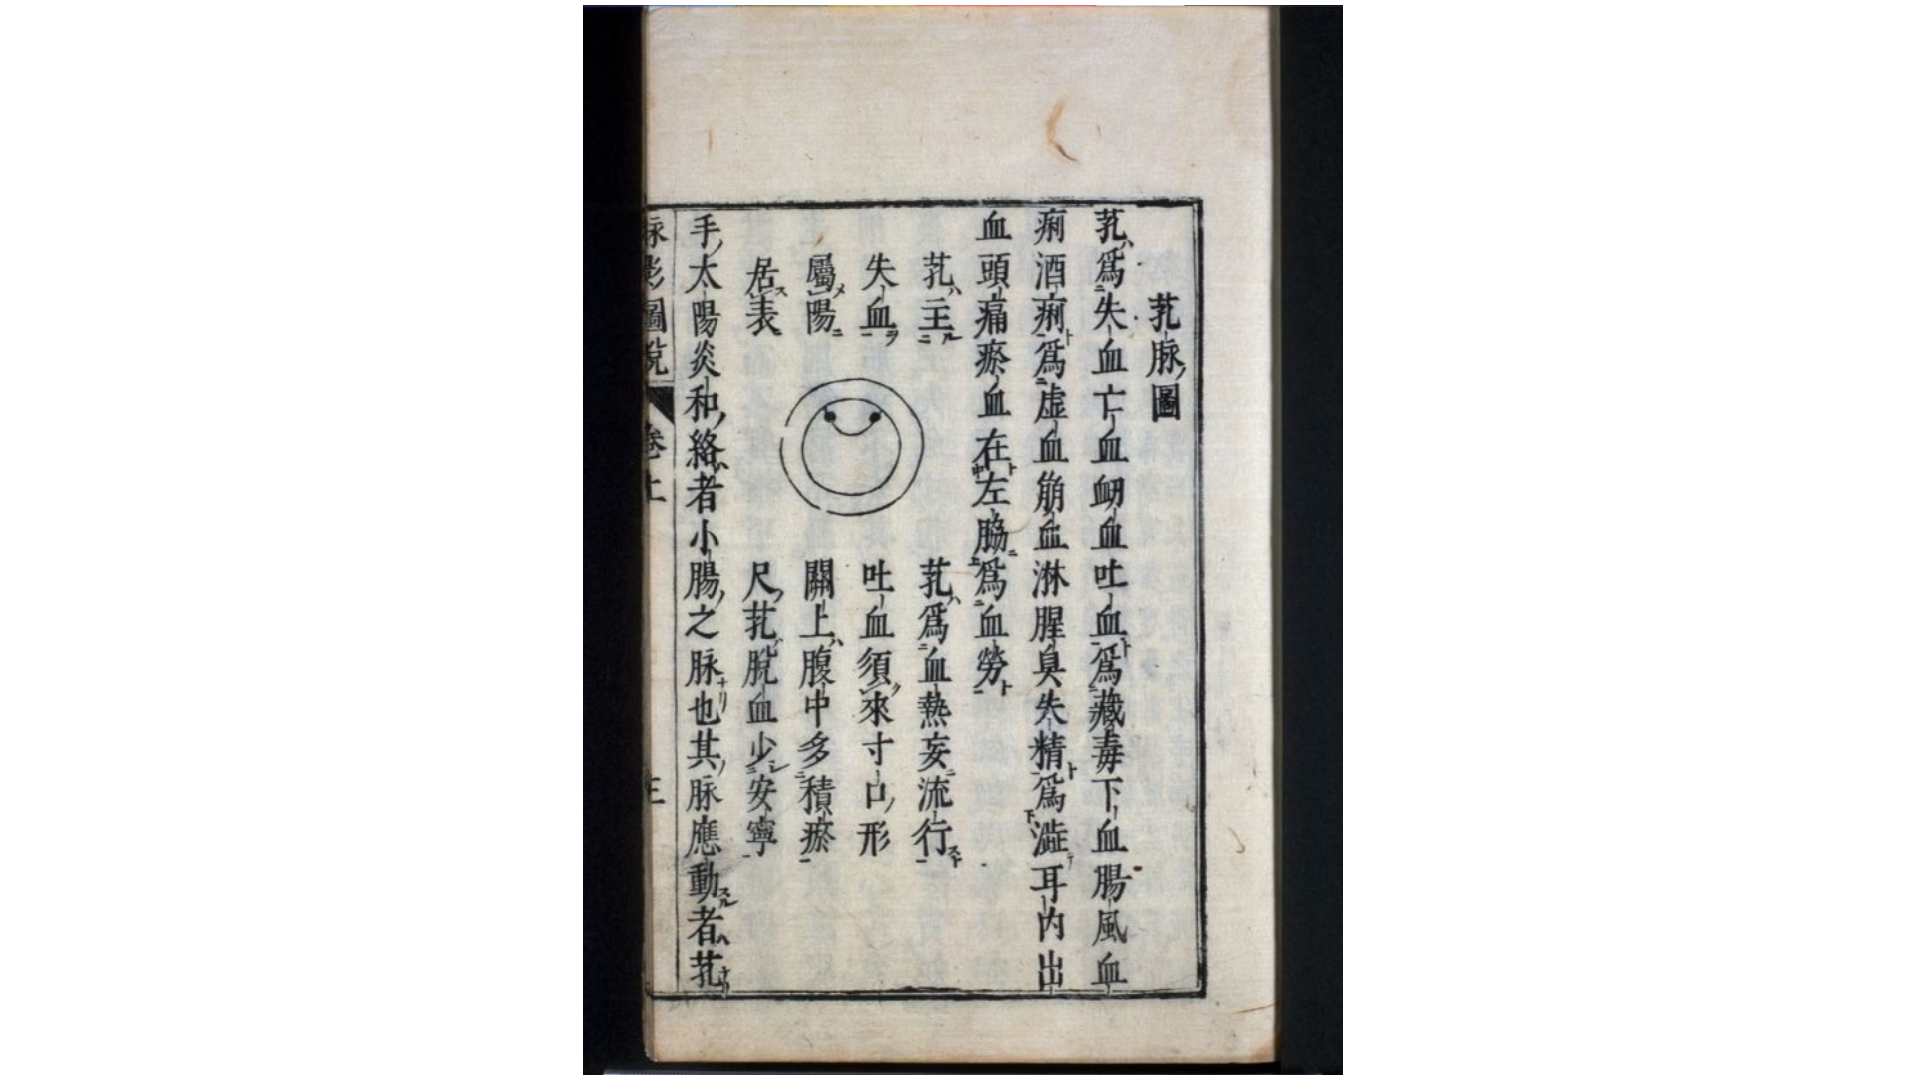 芤脉圖
芤ハ爲失血亡血衂血吐血爲藏毒下血腸風血
痢酒痢爲虚血崩血淋腥臭失精爲澁耳内出
血頭痛瘀血在左脇爲血勞
芤ハ主ル
失血ヲ
屬メ陽ニ
居ス表ニ
芤ハ爲血熱妄流行
吐血須來寸口ノ形
關上ハ腹中多積瘀
尺ノ芤脱血少安寧
手ノ太陽炎和ノ絡ハ者小腸ノ之脉ナリ也其ノ脉應動スル者ハ芤
脉影圖説
卷上
三